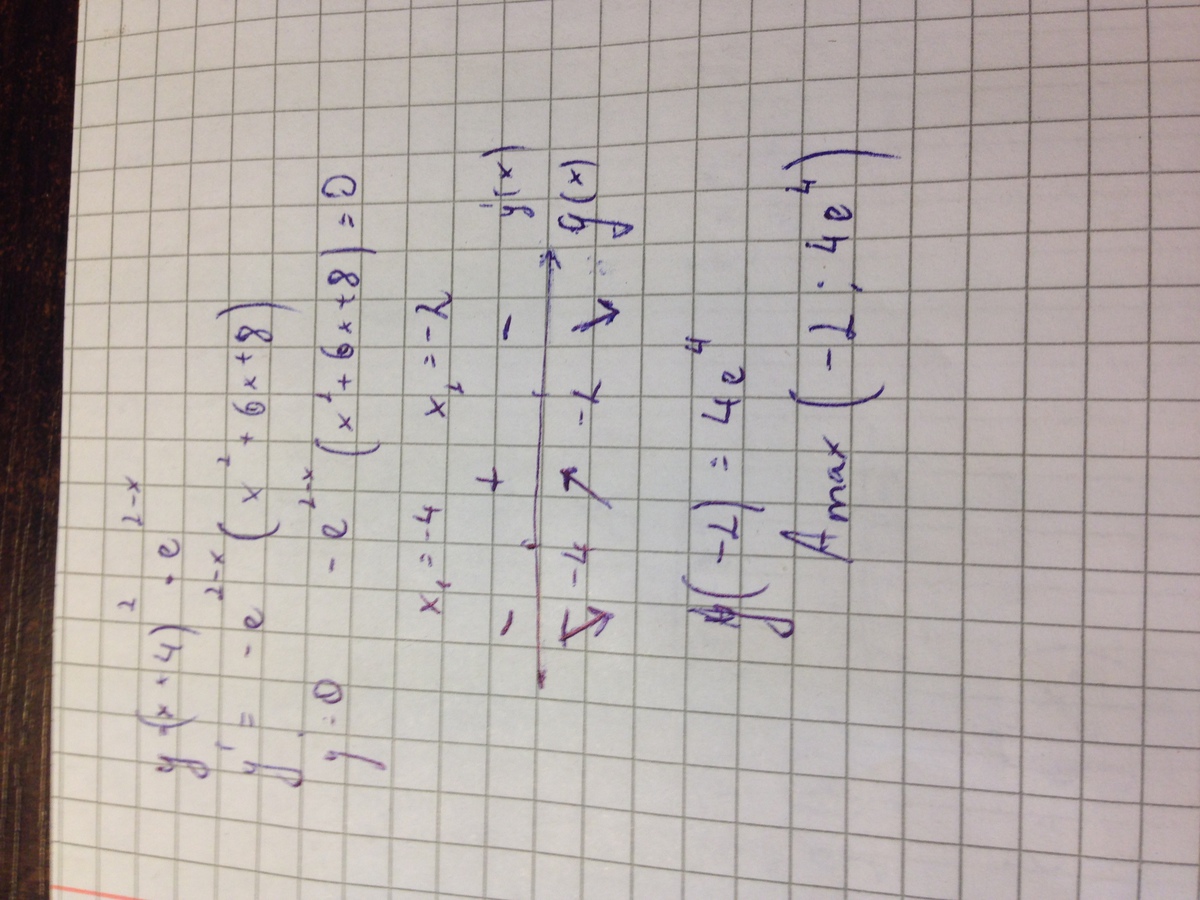 y=(x+4)² · e²⁻ˣ
y' = -e²⁻ˣ(x²+6x+8)
y'=0 -e²⁻ˣ(x²+6x+8)=0
x₁=-4 x₁=-2
- + - y'(x)
-4 -2 y(x)
y(-2)=4e⁴
A max (-2; 4e⁴)